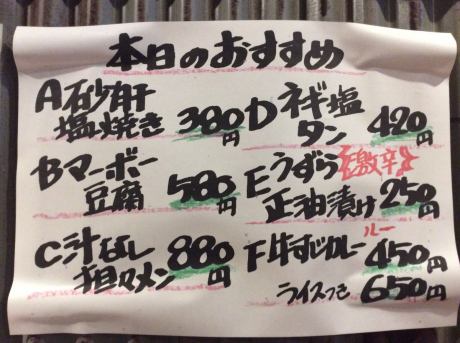 本日のおすすめ
A砂肝
塩焼き 380円
Bマーボー
豆腐 580円
C汁なし
担々メン 880円
Dネギ塩
タン 420円
Eうずら 激辛
正油漬け 250円
F牛すじカレー ルー 450円
ライスつき 650円